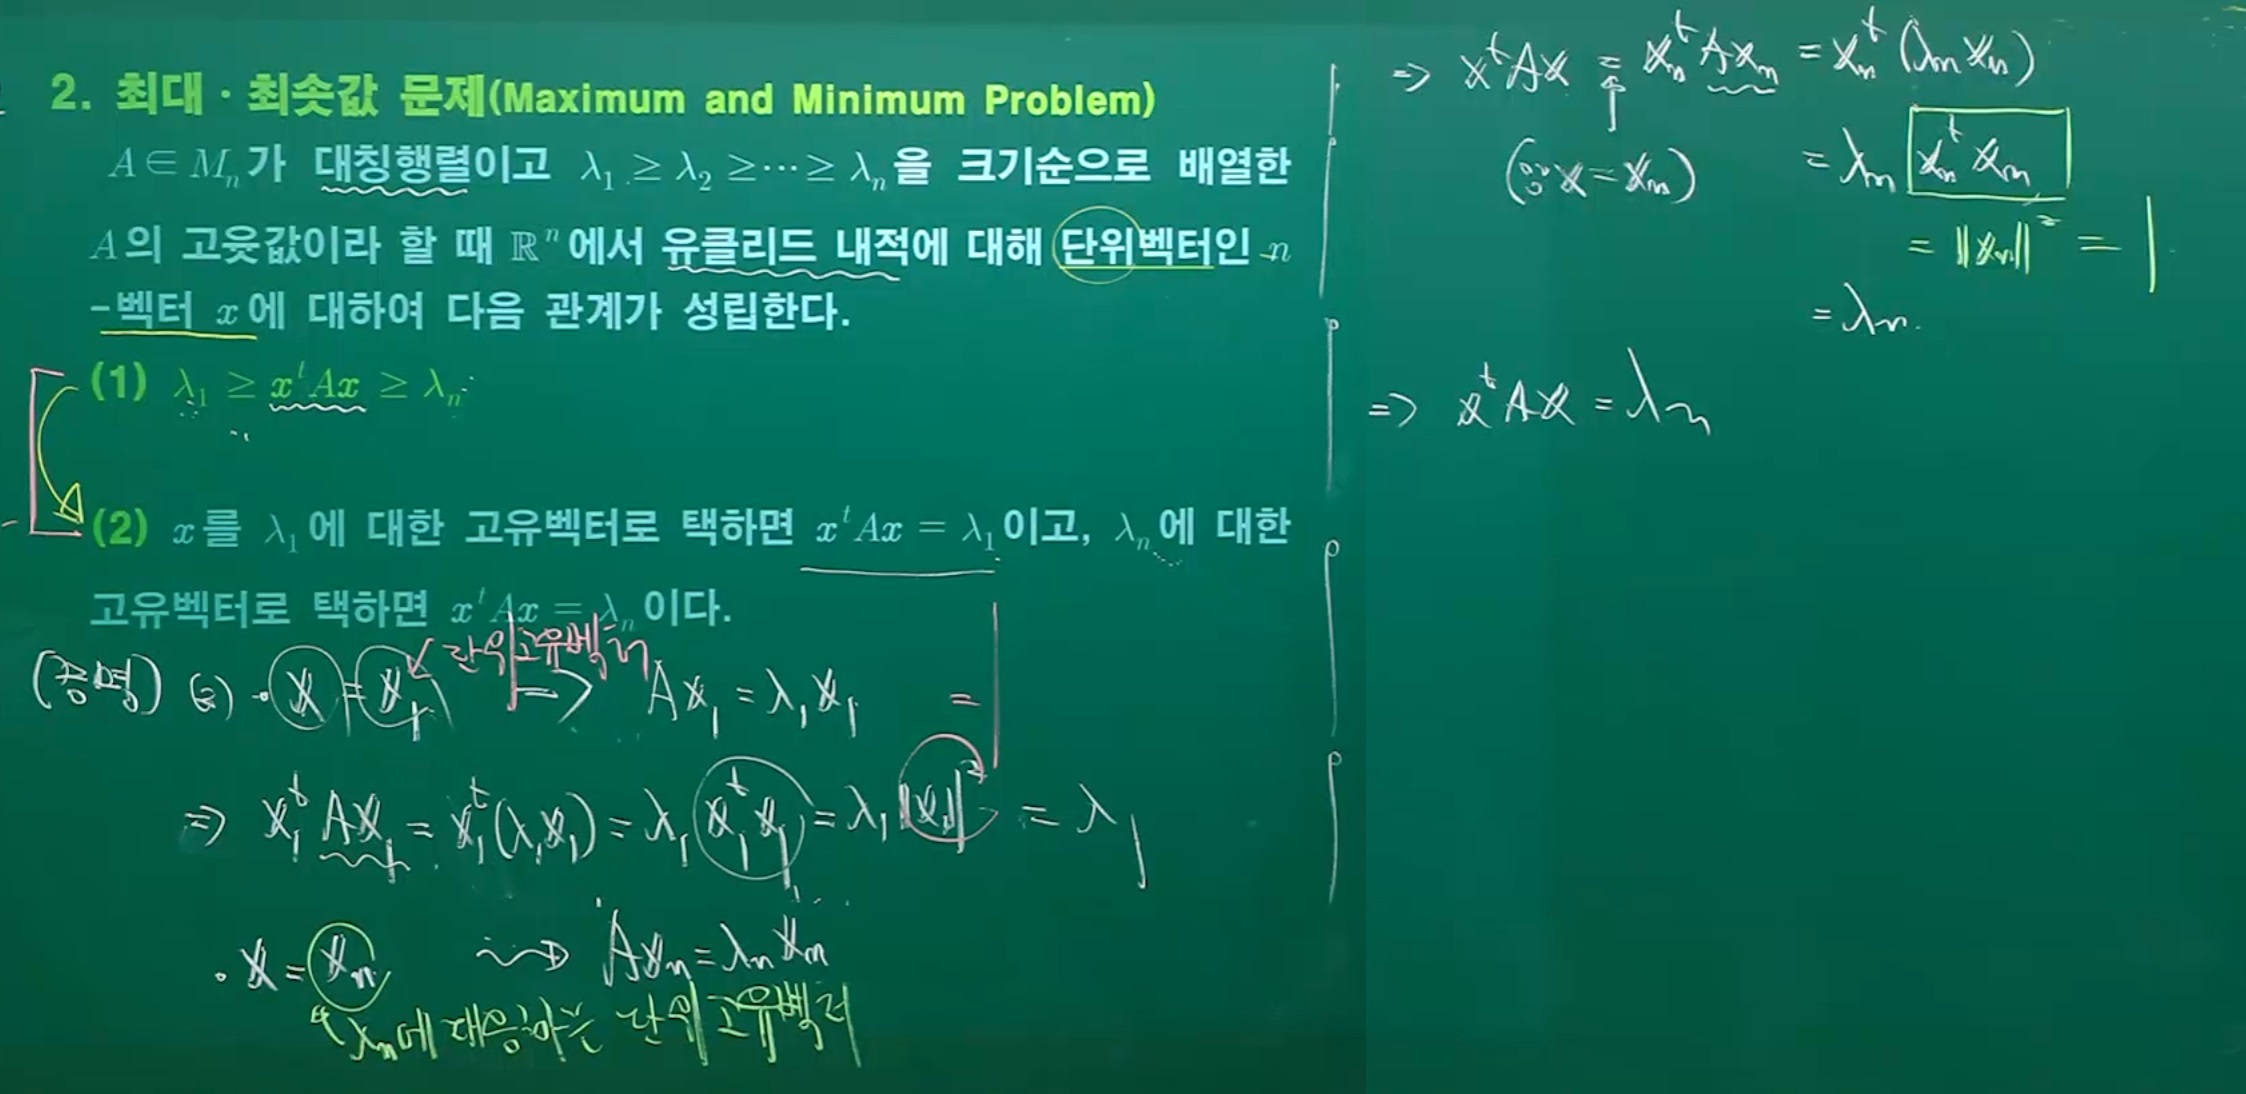 2. 최대 · 최솟값 문제(Maximum and Minimum Problem)
A ∈ Mₙ가 대칭행렬이고 λ₁ ≥ λ₂ ≥ ⋯ ≥ λₙ을 크기순으로 배열한
A의 고윳값이라 할 때 ℝⁿ에서 유클리드 내적에 대해 단위벡터인 n
-벡터 x에 대하여 다음 관계가 성립한다.
(1) λ₁ ≥ xᵗAx ≥ λₙ
(2) x를 λ₁에 대한 고유벡터로 택하면 xᵗAx = λ₁이고, λₙ에 대한
고유벡터로 택하면 xᵗAx = λₙ이다.
단위고유벡터
(증명) (2) · x = x₁ ⇒ Ax₁ = λ₁x₁ = 1
⇒ x₁ᵗAx₁ = x₁ᵗ(λ₁x₁) = λ₁ x₁ᵗx₁ = λ₁‖x₁‖² = λ₁
· x = xₙ ⇝ Axₙ = λₙxₙ
λₙ에 대응하는 단위고유벡터
⇒ xᵗAx = xₙᵗAxₙ = xₙᵗ(λₙxₙ)
(∵ x = xₙ) = λₙ xₙᵗxₙ
= ‖xₙ‖² = 1
= λₙ.
⇒ xᵗAx = λₙ